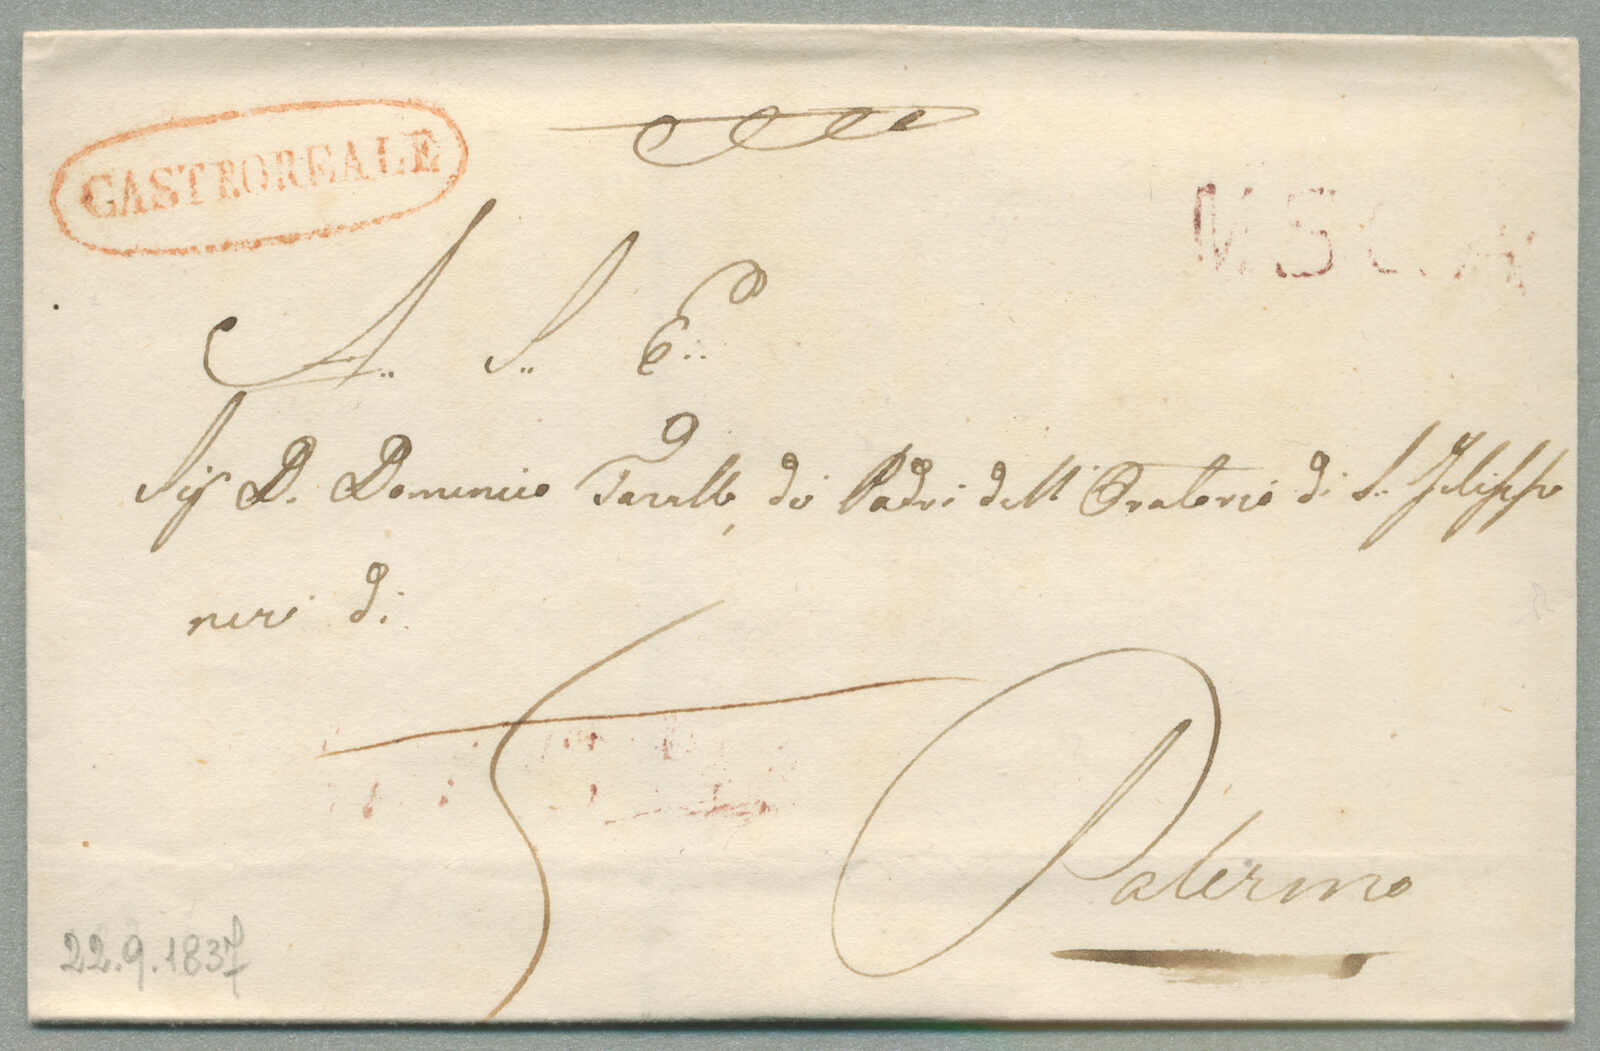 CASTROREALE
A. S. E.
Sig D. Domenico di Padri dell' Oratorio di S. Filippo
neri di
5
Palermo
22.9.1837